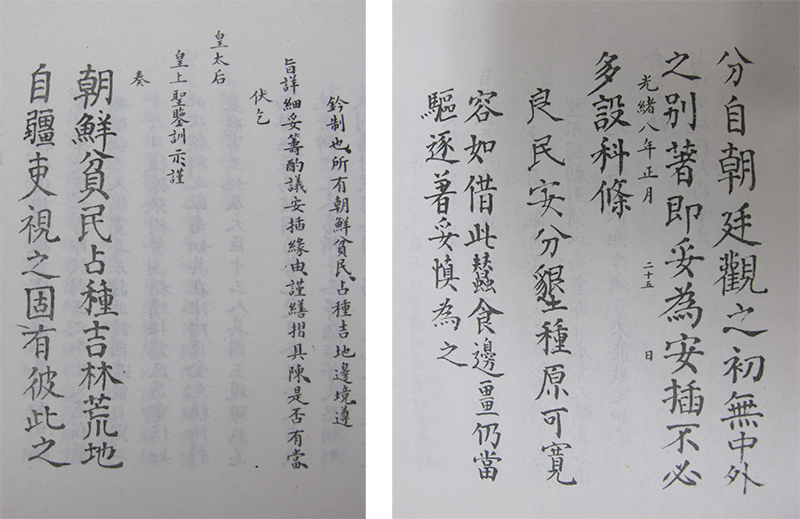 鈐制也所有朝鮮貧民占種吉地邊境遵
旨詳細妥籌酌議安插緣由謹繕摺具陳是否有當
伏乞
皇太后
皇上聖鑒訓示謹
奏
朝鮮貧民占種吉林荒地
自疆吏視之固有彼此之
分自朝廷觀之初無中外
之別著即妥為安插不必
光緒八年正月 二十五 日
多設科條
良民安分墾種原可寬
容如借此蠶食邊畺仍當
驅逐著妥慎為之